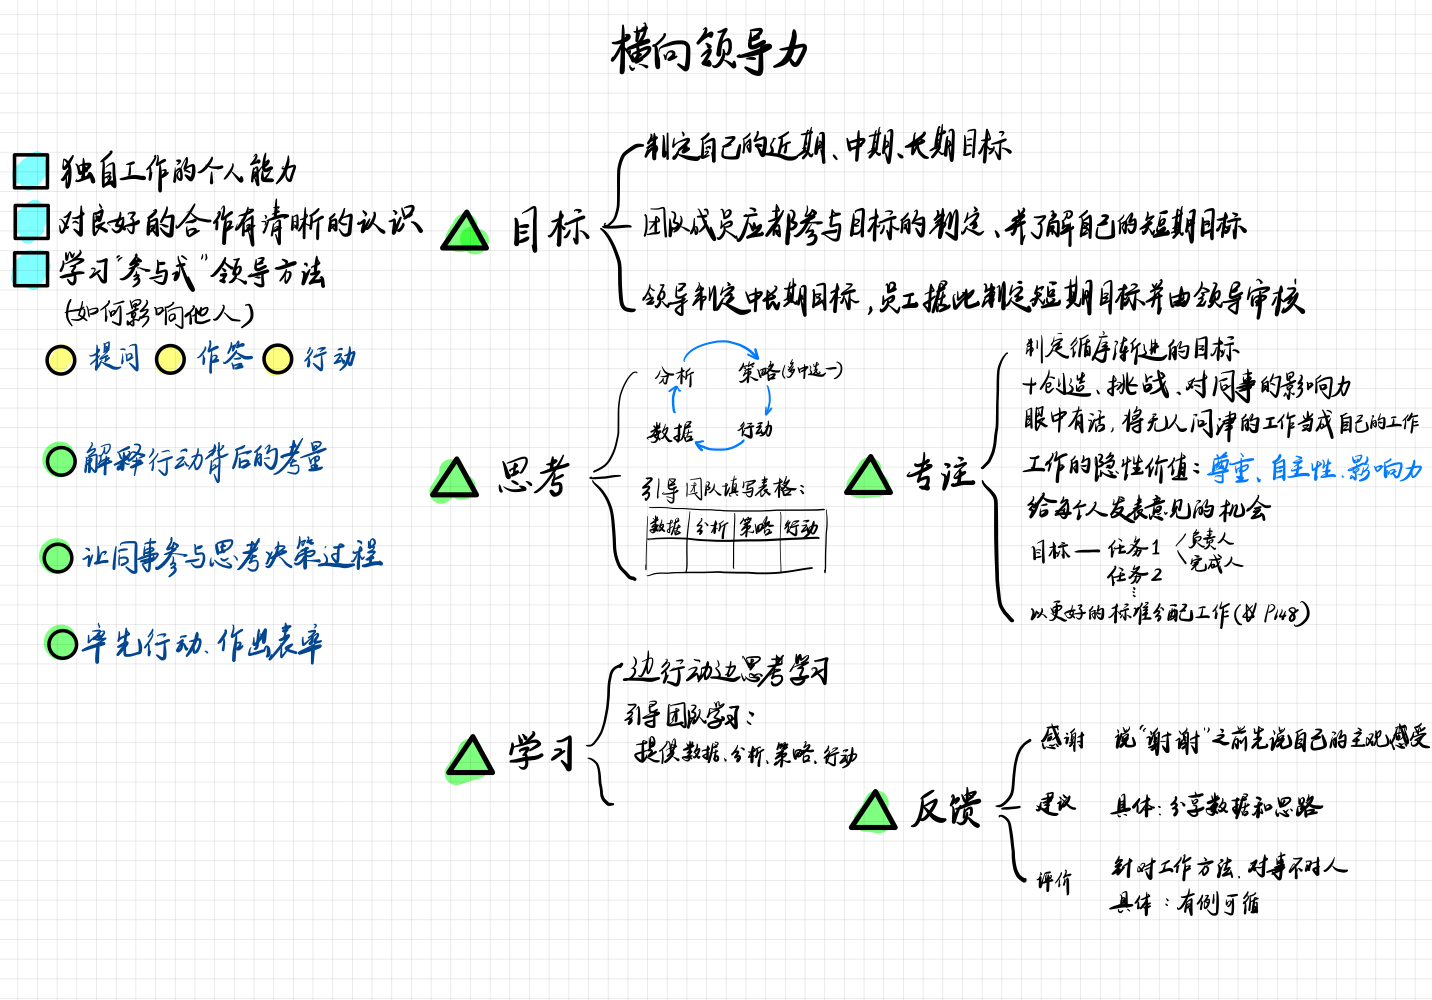 横向领导力
独自工作的个人能力
对良好的合作有清晰的认识
学习“参与式”领导方法
(如何影响他人)
提问 作答 行动
解释行动背后的考量
让同事参与思考决策过程
率先行动、作出表率
目标
制定自己的近期、中期、长期目标
团队成员应都参与目标的制定、并了解自己的短期目标
领导制定中长期目标,员工据此制定短期目标并由领导审核
思考
分析 策略(多中选一)
数据 行动
引导团队填写表格:
数据 分析 策略 行动
专注
制定循序渐进的目标
+创造、挑战、对同事的影响力
眼中有活,将无人问津的工作当成自己的工作
工作的隐性价值:尊重、自主性、影响力
给每个人发表意见的机会
目标 — 任务1 负责人
完成人
任务2
...
以更好的标准分配工作( P148)
学习
边行动边思考学习
引导团队学习:
提供数据、分析、策略、行动
反馈
感谢 说“谢谢”之前先说自己的主观感受
建议 具体:分享数据和思路
评价 针对工作方法、对事不对人
具体:有例可循